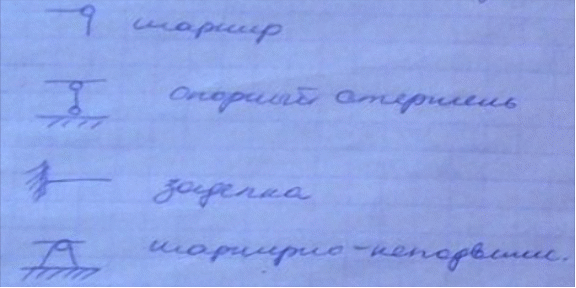 шарнир
опорный стержень
зацепка
шарнирно-неподвижн.